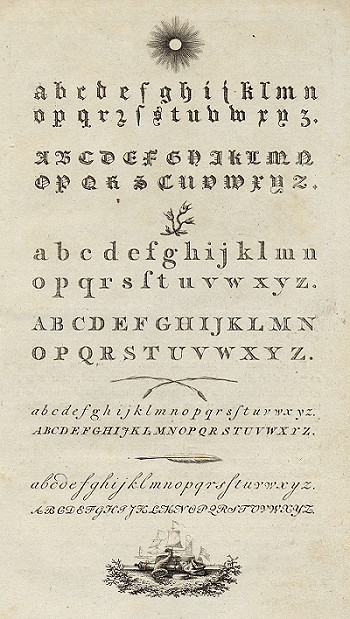 a b c d e f g h i j k l m n
o p q r ꝛ ſ s t u v w x y z.
A B C D E F G H I J K L M N
O P Q R S T U V W X Y Z.
a b c d e f g h i j k l m n
o p q r s ſ t u v w x y z.
A B C D E F G H I J K L M N
O P Q R S T U V W X Y Z.
a b c d e f g h i j k l m n o p q r s ſ t u v w x y z.
A B C D E F G H I J K L M N O P Q R S T U V W X Y Z.
a b c d e f g h i j k l m n o p q r s ſ t u v w x y z.
A B C D E F G H I J K L M N O P Q R S T U V W X Y Z.